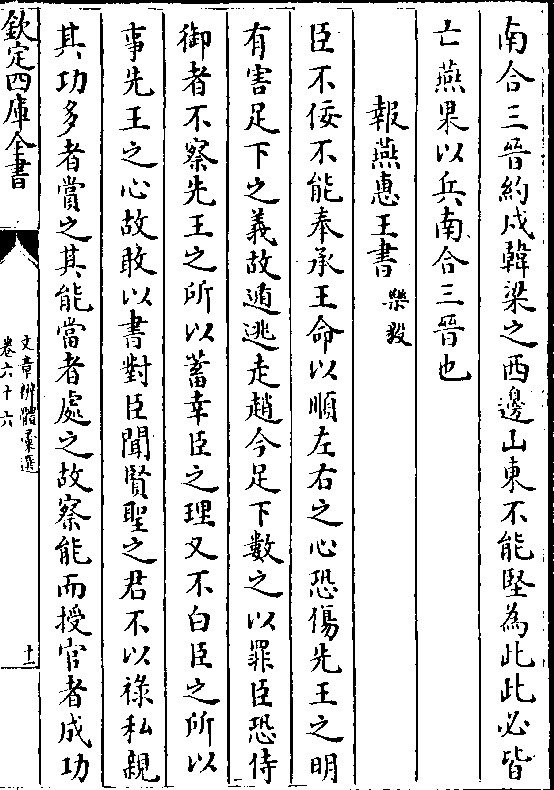 南合三晉約戍韓梁之西邊山東不能堅為此此必皆
亡燕果以兵南合三晉也
報燕惠王書 樂毅
臣不佞不能奉承王命以順左右之心恐傷先王之明
有害足下之義故遁逃走趙今足下數之以罪臣恐侍
御者不察先王之所以蓄幸臣之理又不白臣之所以
事先王之心故敢以書對臣聞賢聖之君不以祿私親
其功多者賞之其能當者處之故察能而授官者成功
欽定四庫全書
文章辨體彙選
卷六十六
十二